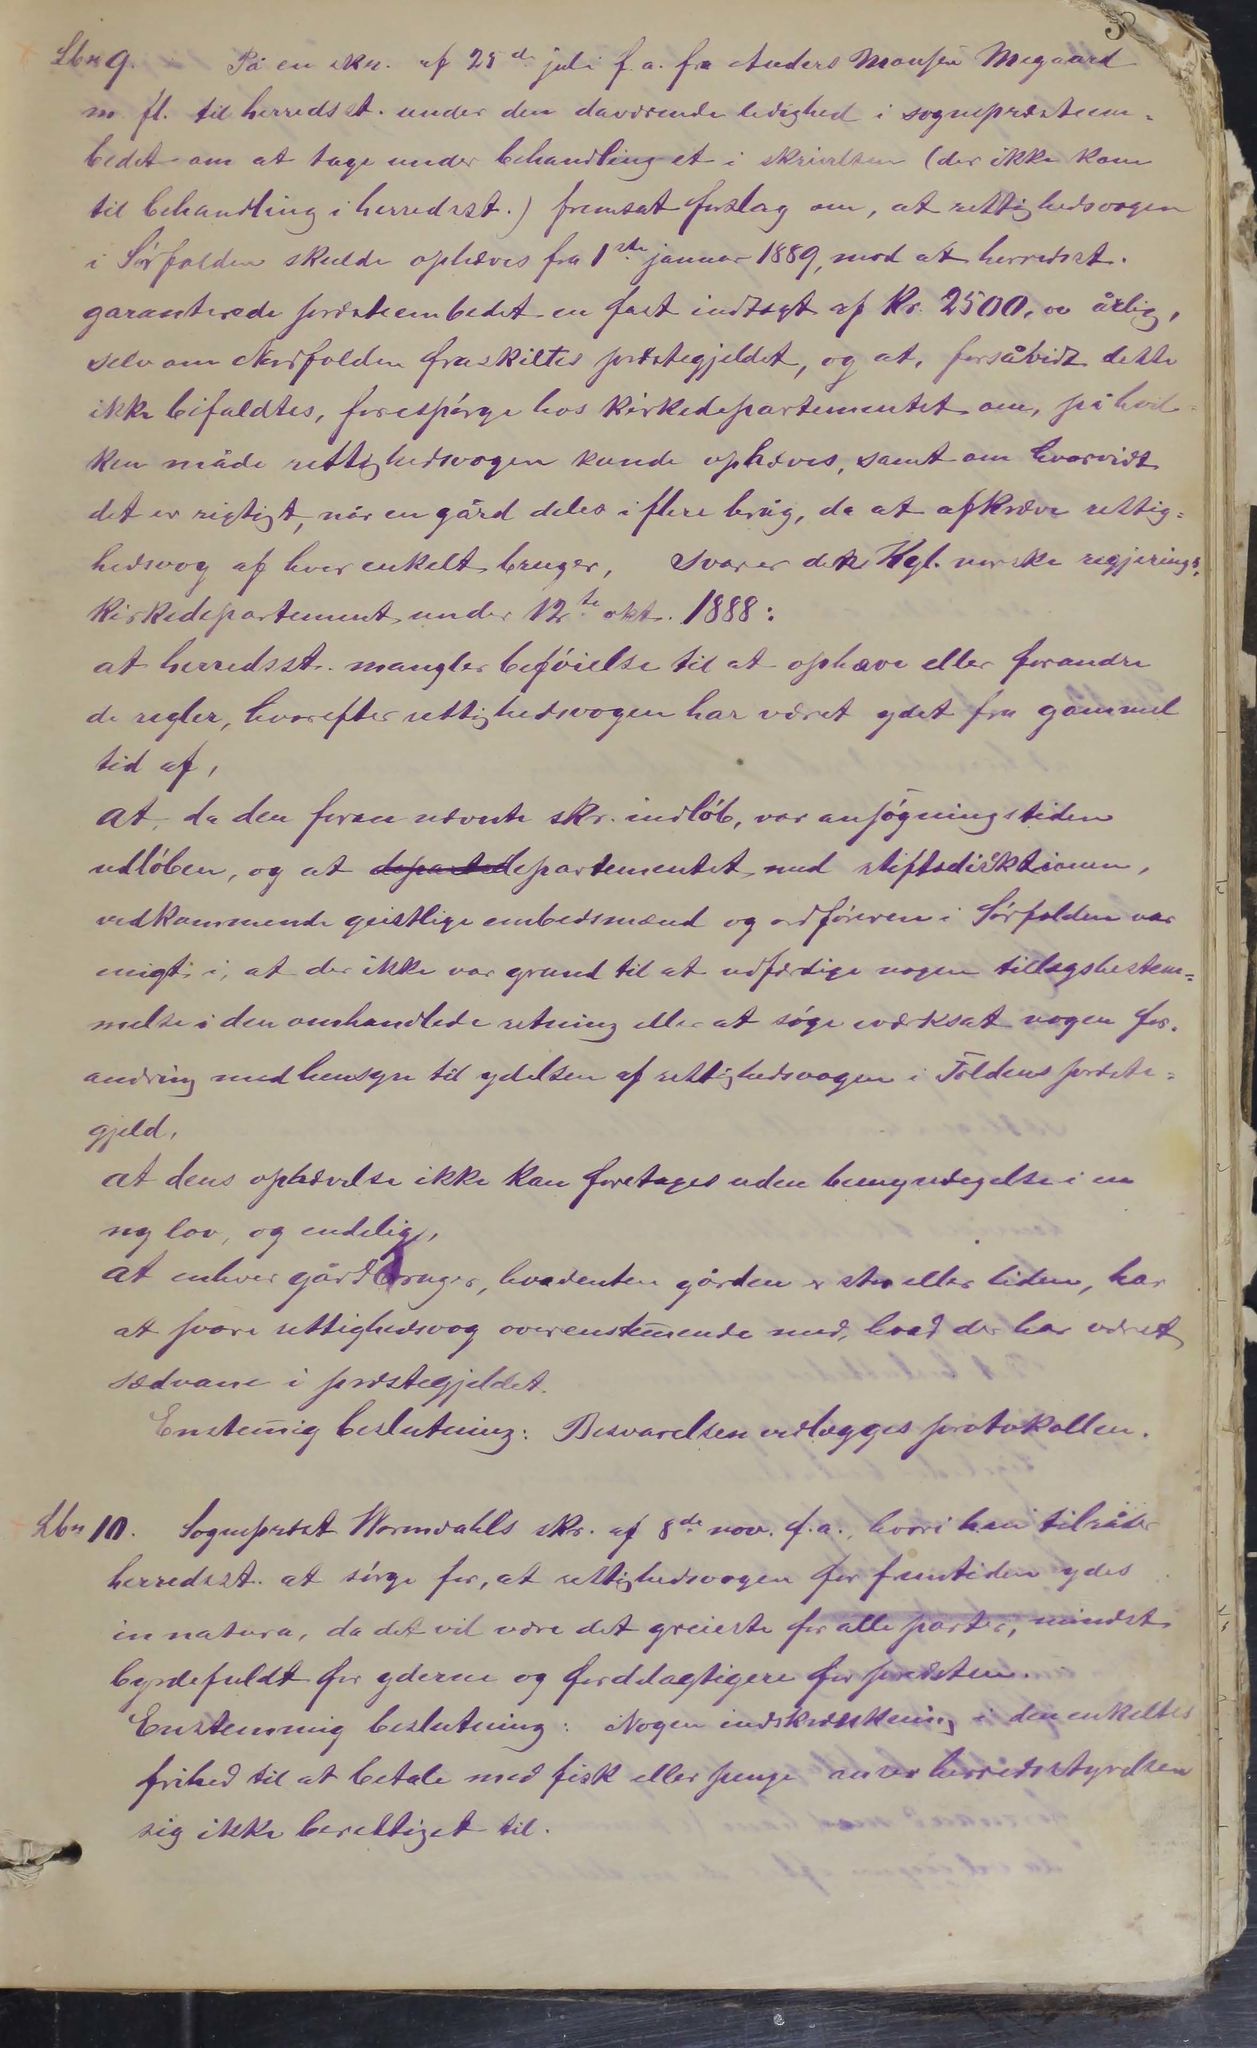 3
Lbn 9. På en skr. af 25de juli f. a. fra Anders Monsen Megaard
m. fl. til herredsst. under den daværende ledighed i sognepræsteem-
bedet om at tage under behandling et i skrivelsen (der ikke kom
til behandling i herredsst.) fremsat forslag om, at rettighedsvogen
i Sørfolden skulde ophæves fra 1ste januar 1889, mod at herredsst.
garanterede præsteembedet en fast indtægt af Kr. 2500,00 årlig,
selv om Nordfolden fraskiltes præstegjeldet, og at, forsåvidt dette
ikke bifaldtes, forespørge hos Kirkedepartementet om, på hvil-
ken måde rettighedsvogen kunde ophæves, samt om hvorvidt
det er rigtigt, når en gård deles i flere brug, da at afkræve rettig-
hedsvog af hver enkelt bruger, svarer det Kgl. norske regjerings
Kirkedepartement under 12te okt. 1888:
at herredsst. mangler beføielse til at ophæve eller forandre
de regler, hvorefter rettighedsvogen har været ydet fra gammel
tid af,
at, da den foran nævnte skr. indløb, var ansøgningstiden
udløben, og at departementet med stiftsdirektionen,
vedkommende geistlige embedsmænd og ordføreren i Sørfolden var
enigt i, at der ikke var grund til at udfærdige nogen tillægsbestem-
melse i den omhandlede retning eller at søge iværksat nogen for-
andring med hensyn til ydelsen af rettighedsvogen i Foldens præste-
gjeld,
at dens ophævelse ikke kan foretages uden bemyndigelse i en
ny lov, og endelig,
at enhver gårdbruger, hvadenten gården er stor eller liden, har
at svare rettighedsvog overenstemende med, hvad der har været
sædvane i præstegjeldet.
Enstemig beslutning: Besvarelsen vedlægges protokollen.
Lbn 10. Sogneprest Wormdahls skr. af 8de nov. f. a., hvori han tilråder
herredsst. at sørge for, at rettighedsvogen for fremtiden ydes
in natura, da det vil være det greieste for alle parter, mindst
byrdefuldt for yderne og fordelagtigere for præsten.
Enstemmig beslutning: Nogen indskrænkning i den enkeltes
frihed til at betale med fisk eller penge anser herredsstyrelsen
sig ikke berettiget til.